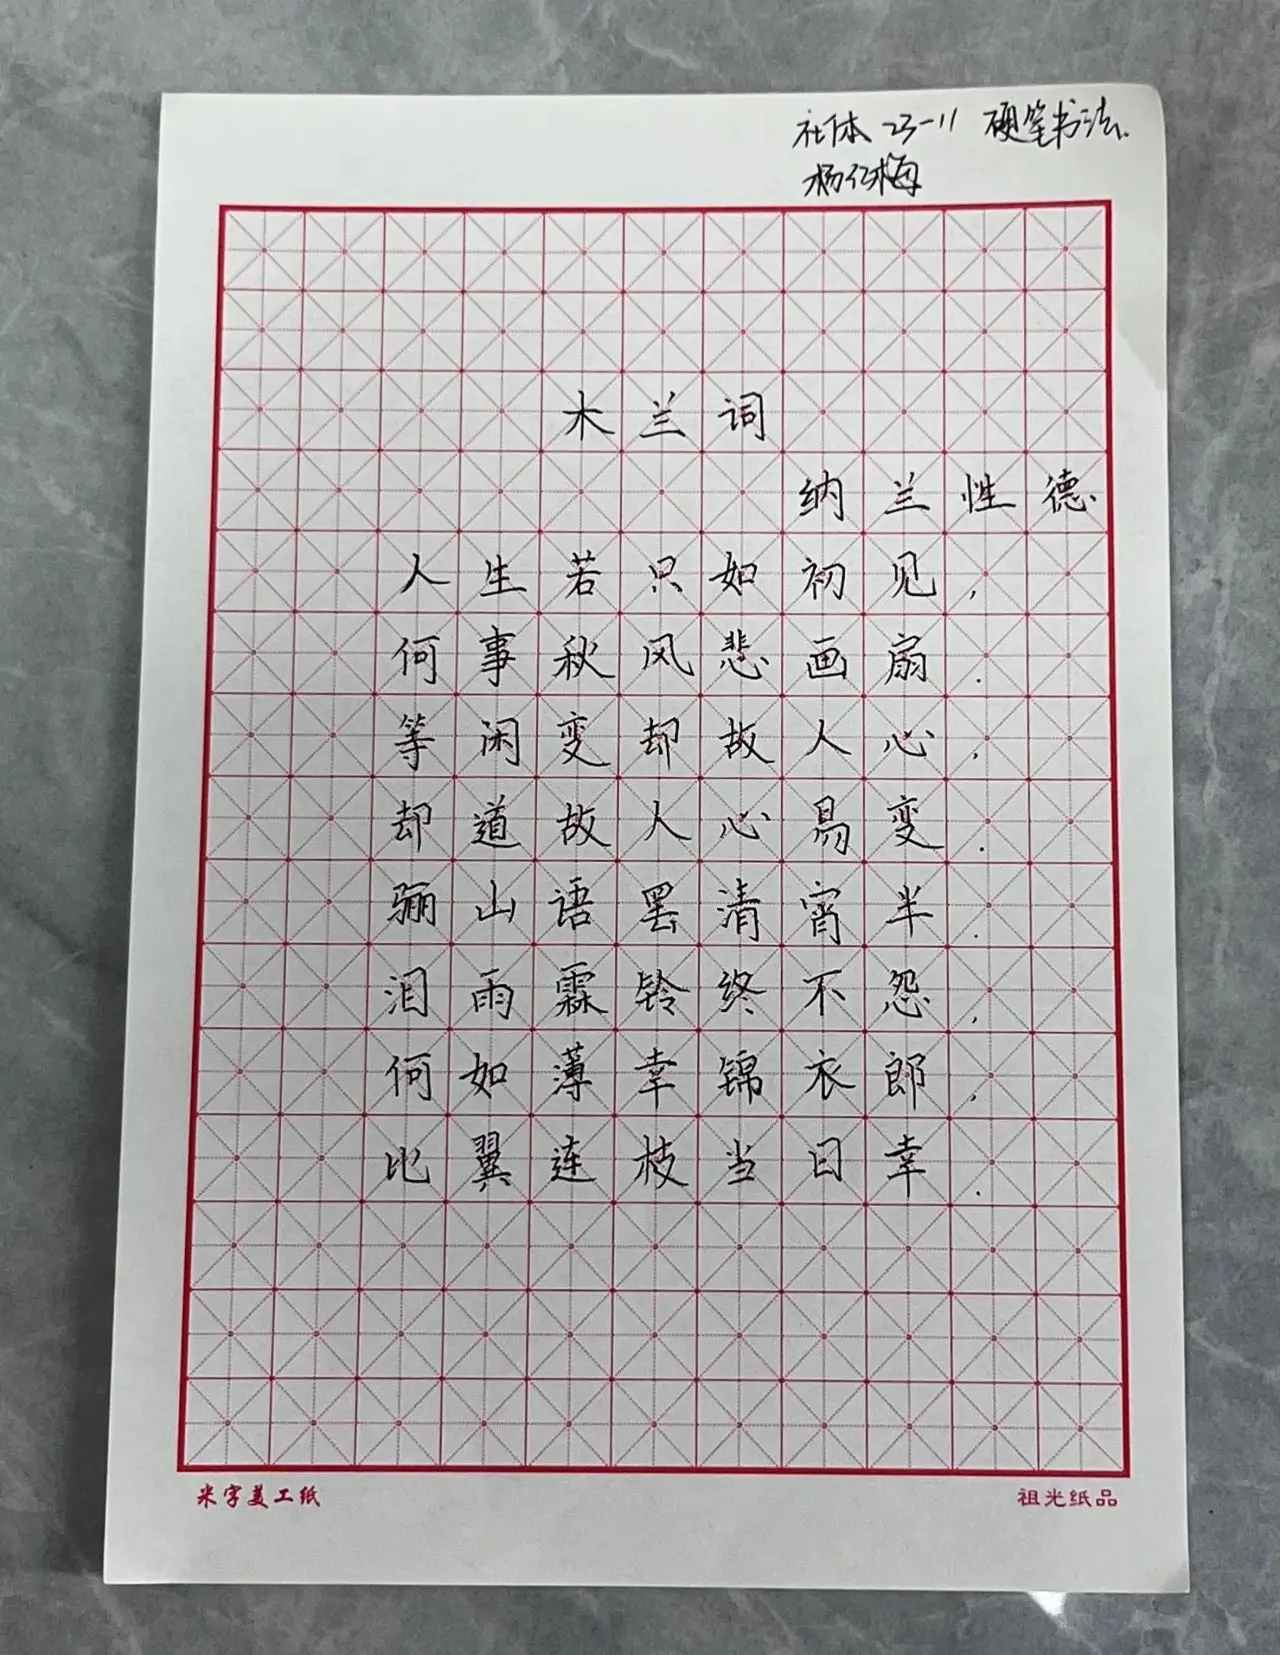 社体23-11 硬笔书法
杨仁梅
木兰词
纳兰性德
人生若只如初见,
何事秋风悲画扇.
等闲变却故人心,
却道故人心易变.
骊山语罢清宵半.
泪雨霖铃终不怨,
何如薄幸锦衣郎,
比翼连枝当日幸.
米字美工纸
祖光纸品